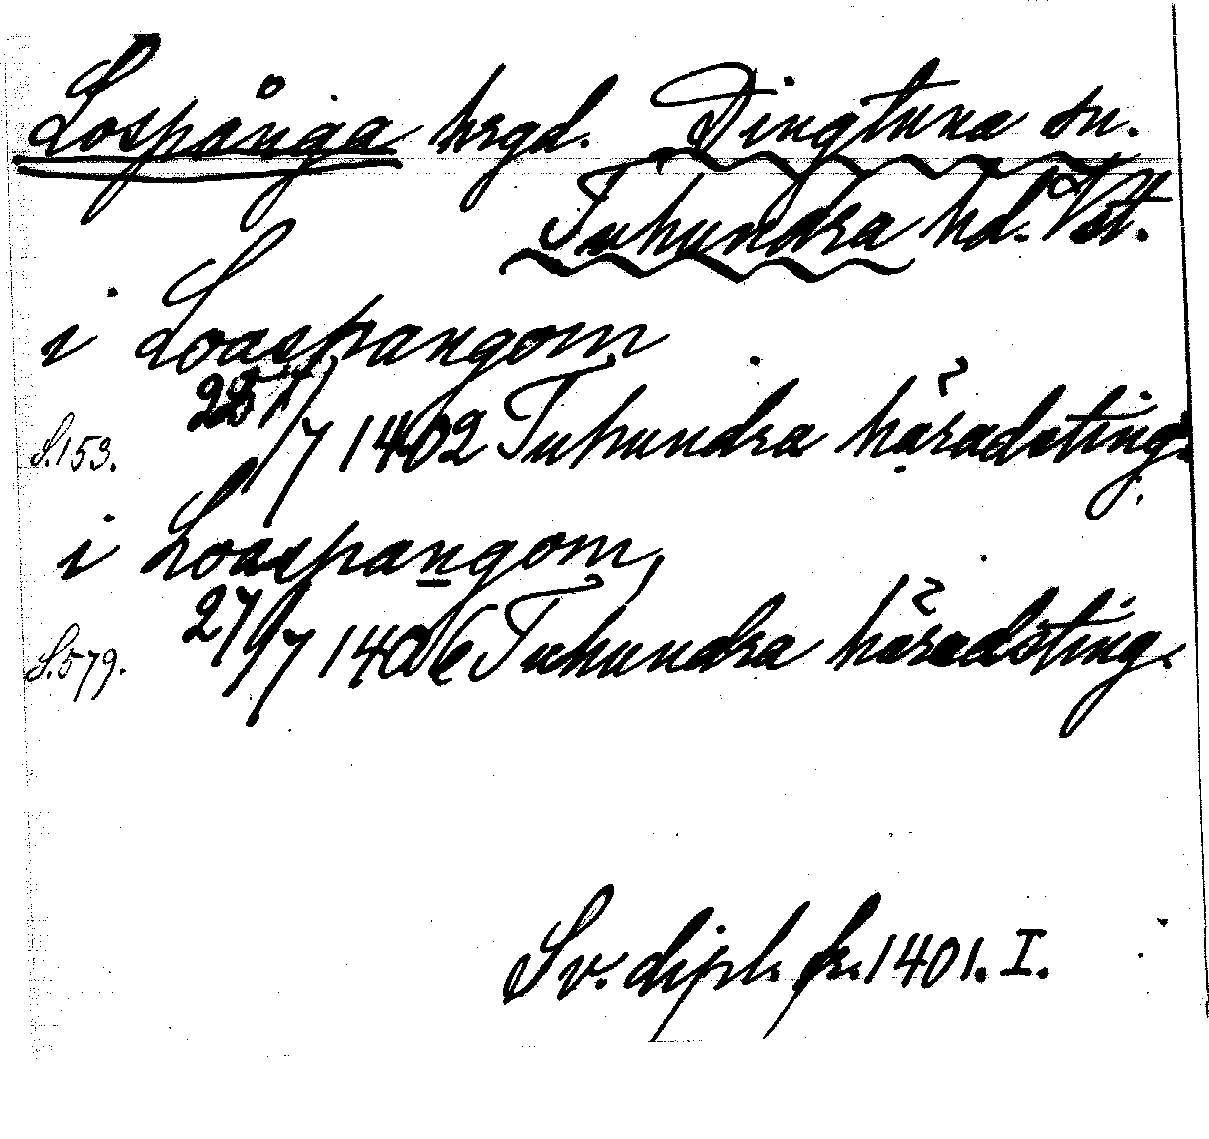 Lospånga hrgd. Dingtuna sn.
Tuhundra hd. Vst.
i Loaspangom
S.153. 25/7 1402 Tuhundra häradsting.
i Loaspangom,
S.579. 27/7 1406 Tuhundra häradsting.
Sv. dipl. fr. 1401. I.